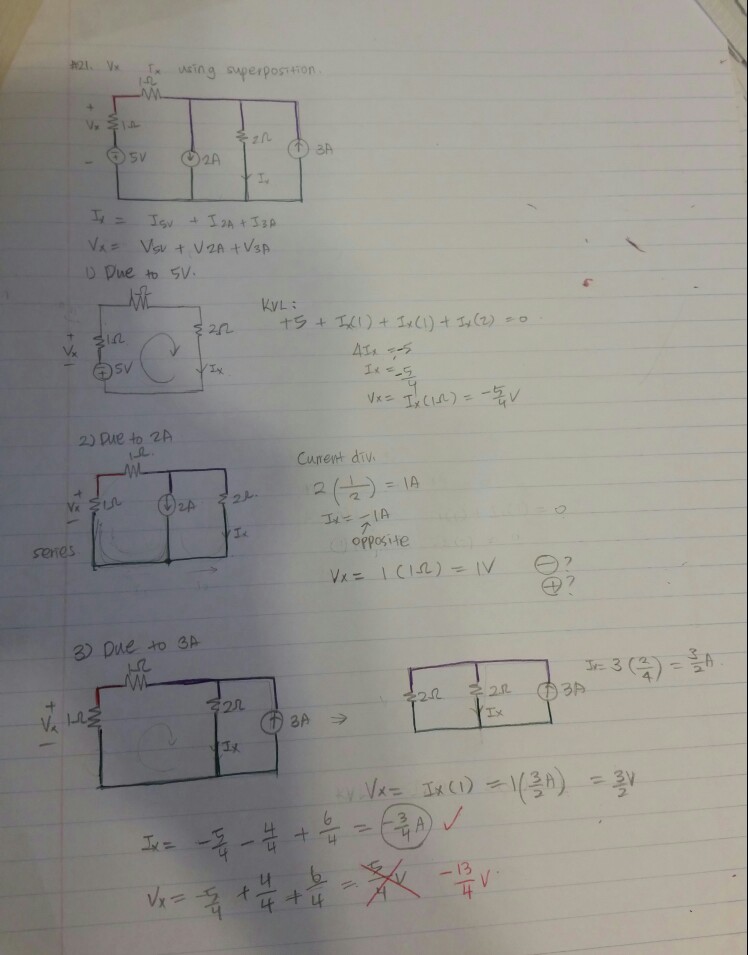 #21. Vx Ix using superposition.
1Ω
+
Vx 1Ω
2Ω
- 5V 2A 3A
Ix
Ix = I5V + I2A + I3A
Vx = V5V + V2A + V3A
1) Due to 5V.
1Ω
KVL:
+5 + Ix(1) + Ix(1) + Ix(2) = 0
+
Vx 1Ω 2Ω
-
5V Ix
4Ix = -5
Ix = -5/4
Vx = Ix(1Ω) = -5/4 V
2) Due to 2A
1Ω
Current div.
+
Vx 1Ω 2A 2Ω
-
Ix
series
2(1/2) = 1A
Ix = -1A = 0
↑
opposite
Vx = 1(1Ω) = 1V ⊖?
⊕?
3) Due to 3A
1Ω
+
Vx 1Ω 2Ω 3A ⇒
-
Ix
2Ω 2Ω 3A
Ix
Ix = 3(2/4) = 3/2 A.
Vx = Ix(1) = 1(3/2 A) = 3/2 V
Ix = -5/4 - 4/4 + 6/4 = -3/4 A ✓
Vx = -5/4 + 4/4 + 6/4 = 5/4 V -13/4 V.